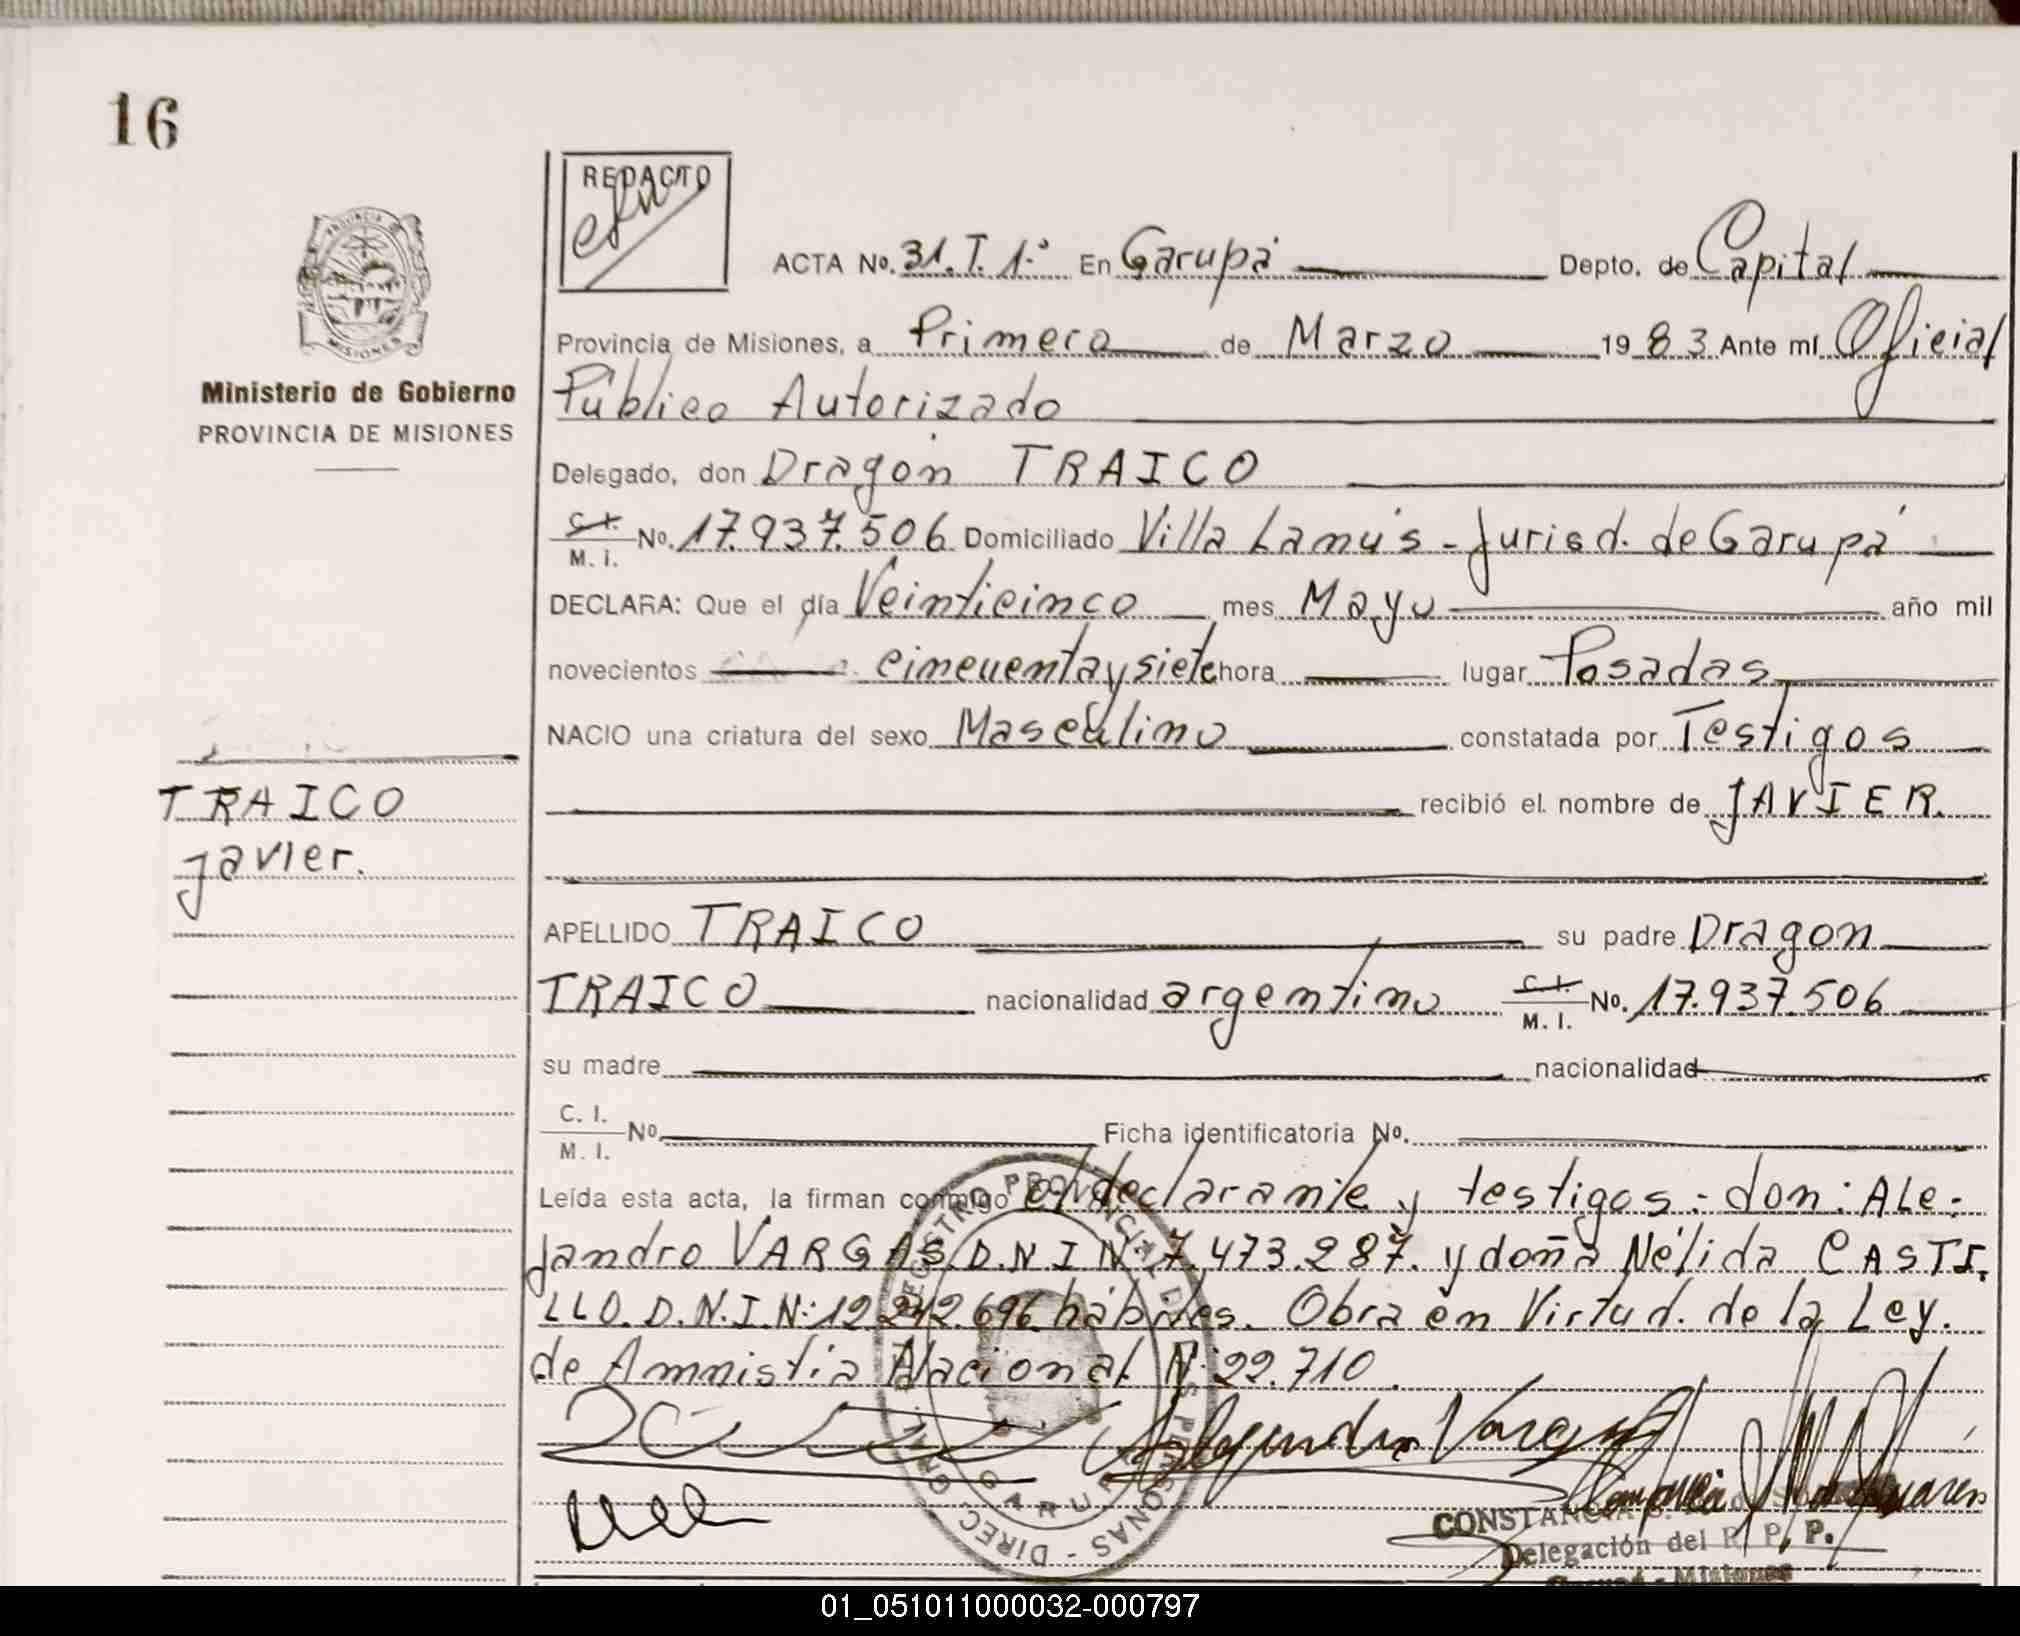 16
REDACTO
ACTA No. 31. T. 1º En Garupá Depto. de Capital
Provincia de Misiones, a Primero de Marzo 1983 Ante mí Oficial
Público Autorizado
Delegado, don Dragon TRAICO
C. I.
M. I. No. 17.937.506 Domiciliado Villa Lanús - Jurisd. de Garupá
DECLARA: Que el día Veinticinco mes Mayo año mil
novecientos cincuenta y siete hora lugar Posadas
NACIO una criatura del sexo Masculino constatada por Testigos
recibió el nombre de JAVIER.
APELLIDO TRAICO su padre Dragon
TRAICO nacionalidad argentino C. I.
M. I. No. 17.937.506
su madre nacionalidad
C. I.
M. I. No. Ficha identificatoria No.
Leída esta acta, la firman conmigo el declarante y testigos - don: Ale-
jandro VARGAS D.N.I Nº 7.473.287. y doña Nélida CASTI-
LLO. D.N.I.Nº: 12.242.696 hábiles. Obra en Virtud. de la Ley.
de Amnistía Nacional Nº 22.710.
Alejandro Vargas
CONSTANCIA
Delegación del R. P. P.
Misiones
PROVINCIA
MISIONES
Ministerio de Gobierno
PROVINCIA DE MISIONES
TRAICO
Javier.
REGISTRO PROVINCIAL DE LAS PERSONAS - DIREC. GRAL.
GARUPA
01_051011000032-000797